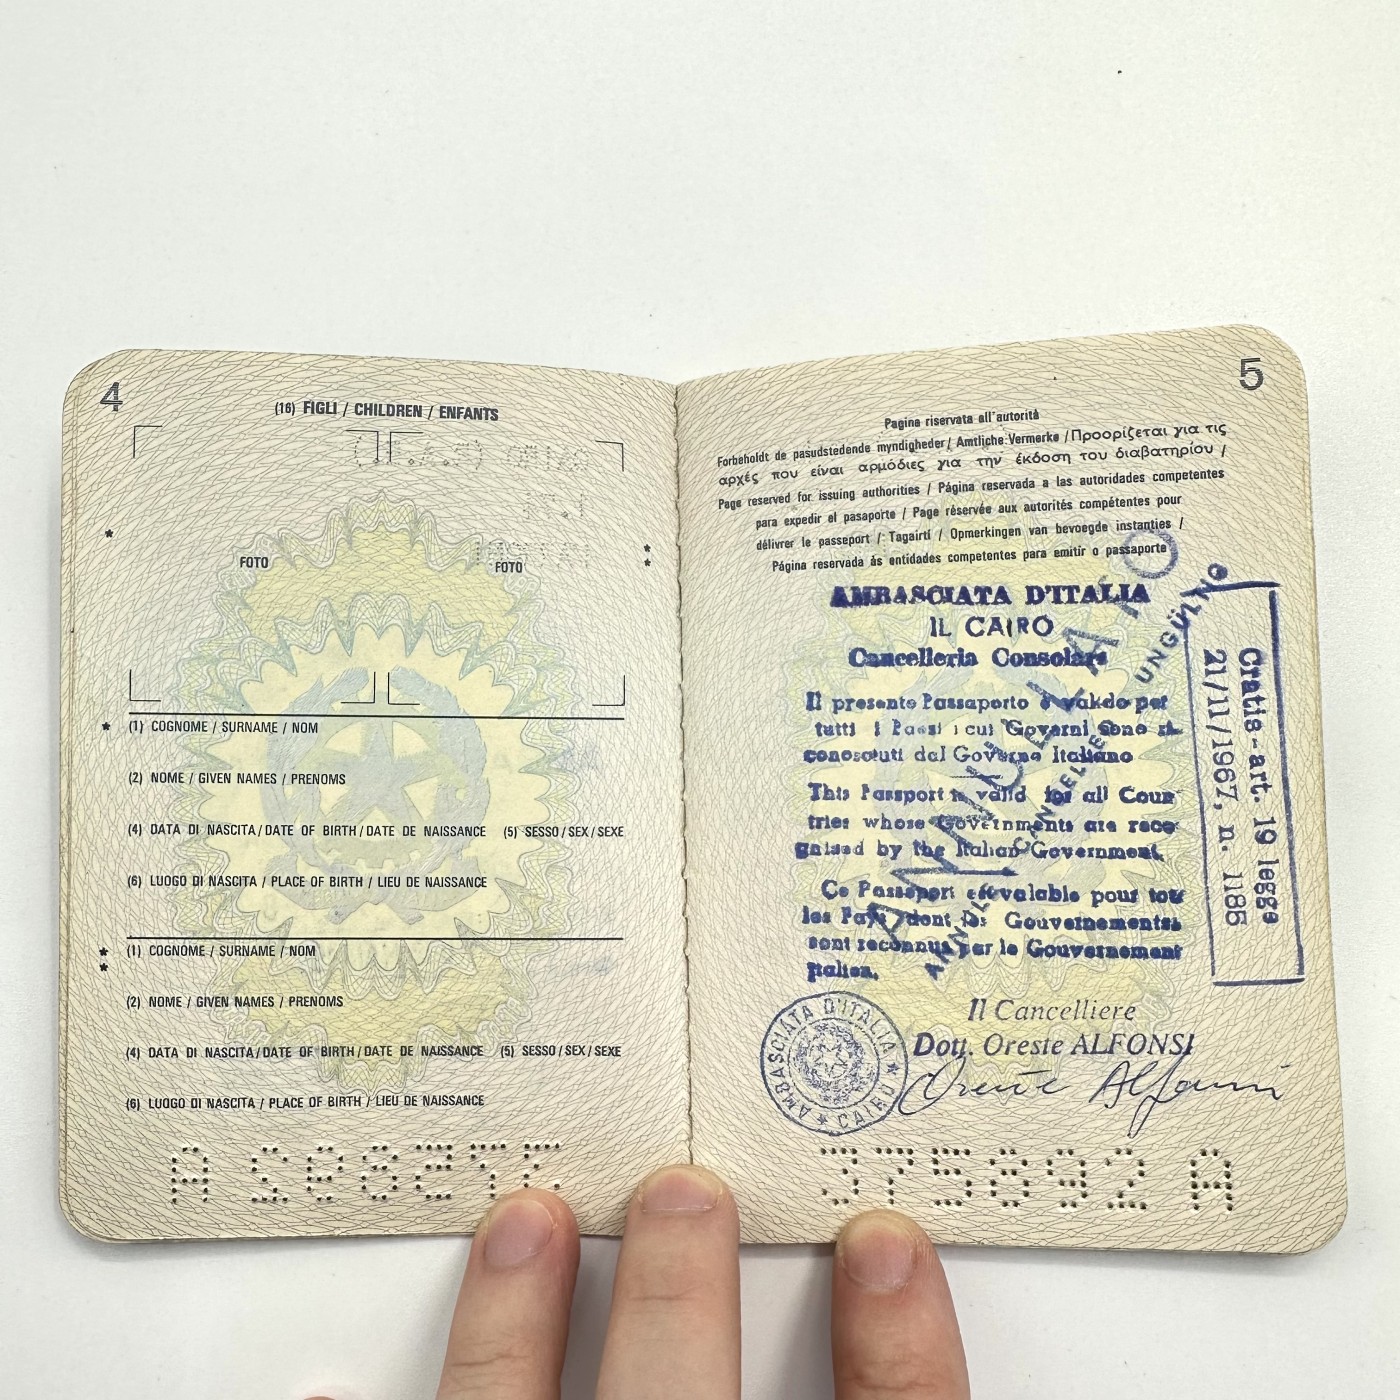 4
(16) FIGLI / CHILDREN / ENFANTS
FOTO
FOTO
*
*
*
* (1) COGNOME / SURNAME / NOM
(2) NOME / GIVEN NAMES / PRENOMS
(4) DATA DI NASCITA / DATE OF BIRTH / DATE DE NAISSANCE (5) SESSO / SEX / SEXE
(6) LUOGO DI NASCITA / PLACE OF BIRTH / LIEU DE NAISSANCE
*
*
(1) COGNOME / SURNAME / NOM
(2) NOME / GIVEN NAMES / PRENOMS
(4) DATA DI NASCITA / DATE OF BIRTH / DATE DE NAISSANCE (5) SESSO / SEX / SEXE
(6) LUOGO DI NASCITA / PLACE OF BIRTH / LIEU DE NAISSANCE
5
Pagina riservata all'autorità
Forbeholdt de pasudstedende myndigheder / Amtliche Vermerke / Προορίζεται για τις
αρχές που είναι αρμόδιες για την έκδοση του διαβατηρίου /
Page reserved for issuing authorities / Página reservada a las autoridades competentes
para expedir el pasaporte / Page réservée aux autorités compétentes pour
délivrer le passeport / Tagairtí / Opmerkingen van bevoegde instanties /
Página reservada às entidades competentes para emitir o passaporte
AMBASCIATA D'ITALIA
IL CAIRO
Cancelleria Consolare
Il presente Passaporto è valido per
tutti i Paesi i cui Governi sono ri-
conosciuti dal Governo Italiano
This Passport is valid for all Coun-
tries whose Governments are reco-
gnised by the Italian Government.
Ce Passeport est valable pour tous
les Pays dont les Gouvernements
sont reconnus par le Gouvernement
Italien.
ANNULLATO
Gratis - art. 19 legge
21/11/1967, n. 1185
Il Cancelliere
Dott. Oreste ALFONSI
Oreste Alfonsi
AMBASCIATA D'ITALIA * CAIRO *
J75892 A